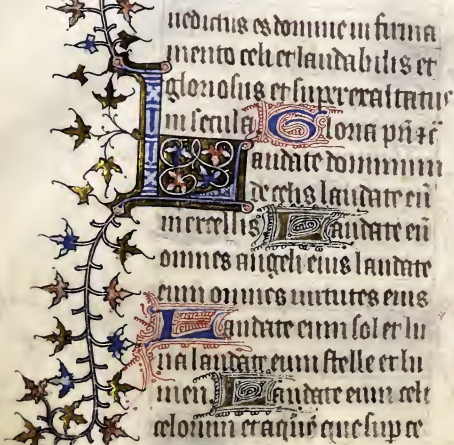 nedictus es domine in firma
mento celi et laudabilis et
gloriosus et superexaltatus
in secula Gloria pri zc
Laudate dominum
de celis laudate eu
in excelsis Laudate eu
omnes angeli eius laudate
eum omnes uirtutes eius
Laudate eum sol et lu
na laudate eum stelle et lu
men Laudate eum celi
celorum et aque que sup ce